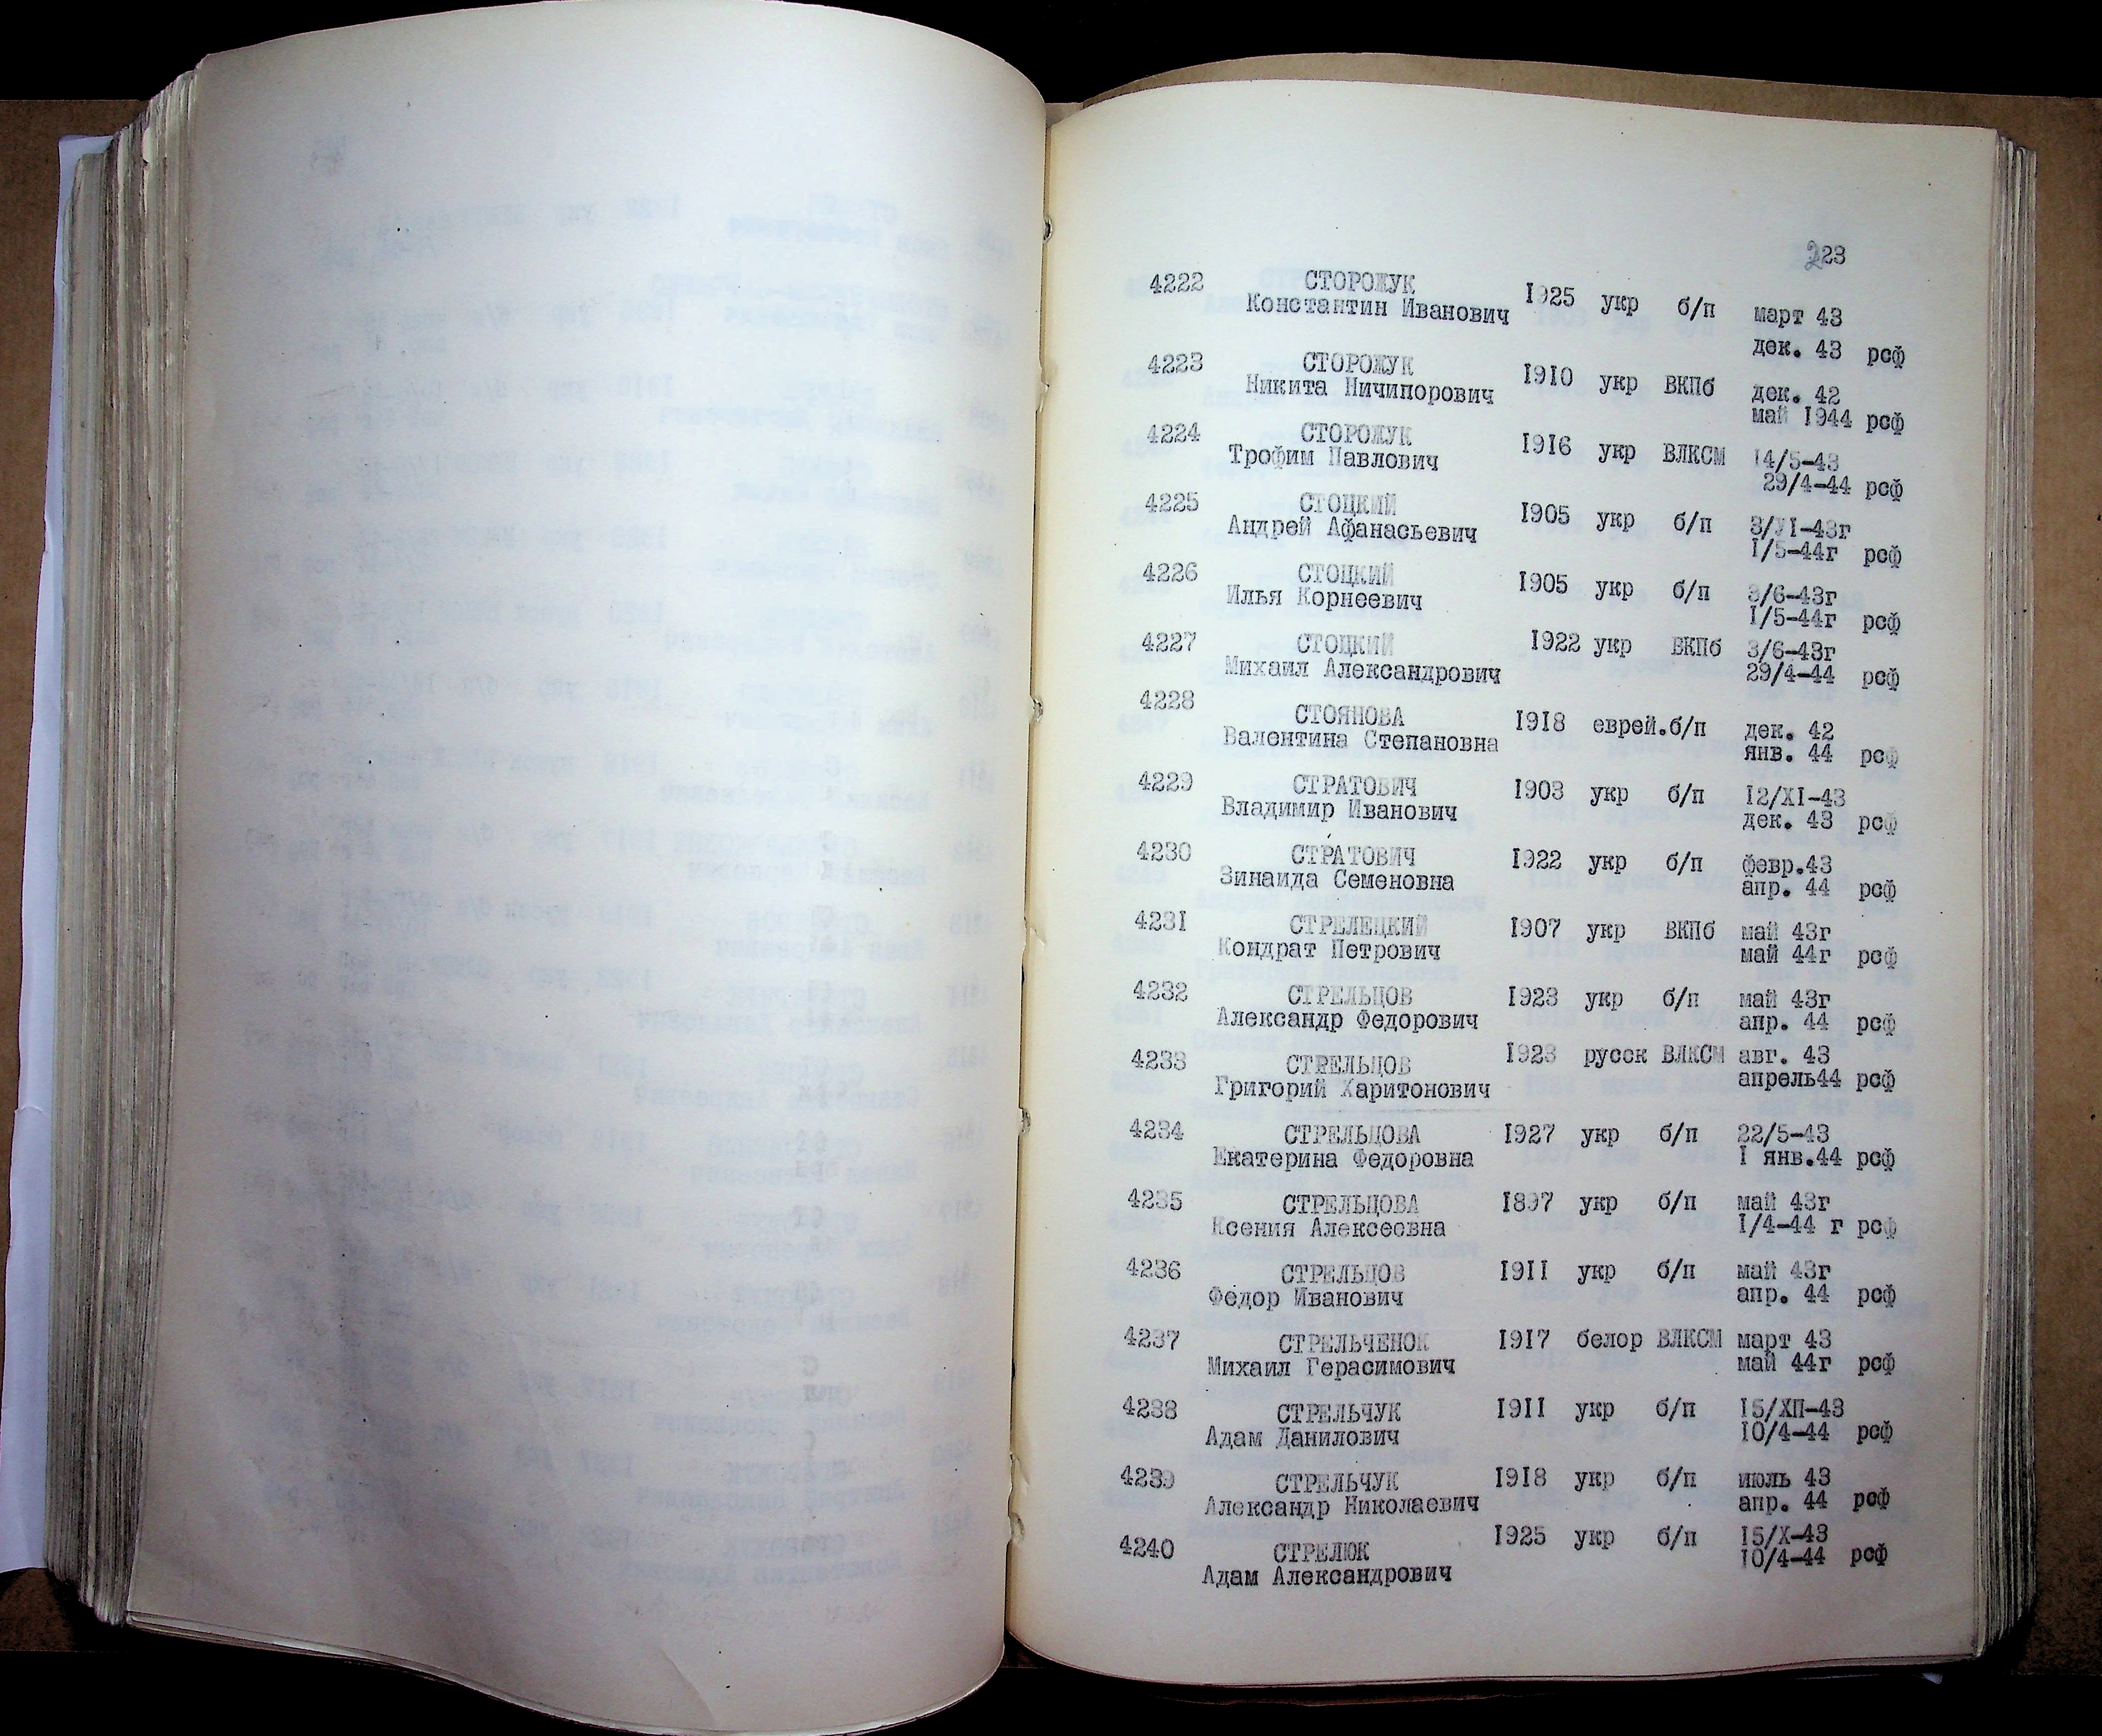 223
4222 СТОРОЖУК 1925 укр б/п март 43
Константин Иванович дек. 43 рсф
4223 СТОРОЖУК 1910 укр ВКПб дек. 42
Никита Ничипорович май 1944 рсф
4224 СТОРОЖУК 1916 укр ВЛКСМ 14/5-43
Трофим Павлович 29/4-44 рсф
4225 СТОЦКИЙ 1905 укр б/п 3/УI-43г
Андрей Афанасьевич 1/5-44г рсф
4226 СТОЦКИЙ 1905 укр б/п 3/6-43г
Илья Корнеевич 1/5-44г рсф
4227 СТОЦКИЙ 1922 укр ВКПб 3/6-43г
Михаил Александрович 29/4-44 рсф
4228 СТОЯНОВА 1918 еврей.б/п дек. 42
Валентина Степановна янв. 44 рсф
4229 СТРАТОВИЧ 1903 укр б/п 12/XI-43
Владимир Иванович дек. 43 рсф
4230 СТРАТОВИЧ 1922 укр б/п февр.43
Зинаида Семеновна апр. 44 рсф
4231 СТРЕЛЕЦКИЙ 1907 укр ВКПб май 43г
Кондрат Петрович май 44г рсф
4232 СТРЕЛЬЦОВ 1923 укр б/п май 43г
Александр Федорович апр. 44 рсф
4233 СТРЕЛЬЦОВ 1923 русск ВЛКСМ авг. 43
Григорий Харитонович апрель44 рсф
4234 СТРЕЛЬЦОВА 1927 укр б/п 22/5-43
Екатерина Федоровна 1 янв.44 рсф
4235 СТРЕЛЬЦОВА 1897 укр б/п май 43г
Ксения Алексеевна 1/4-44 г рсф
4236 СТРЕЛЬЦОВ 1911 укр б/п май 43г
Федор Иванович апр. 44 рсф
4237 СТРЕЛЬЧЕНОК 1917 белор ВЛКСМ март 43
Михаил Герасимович май 44г рсф
4238 СТРЕЛЬЧУК 1911 укр б/п 15/ХП-43
Адам Данилович 10/4-44 рсф
4239 СТРЕЛЬЧУК 1918 укр б/п июль 43
Александр Николаевич апр. 44 рсф
4240 СТРЕЛЮК 1925 укр б/п 15/X-43
Адам Александрович 10/4-44 рсф